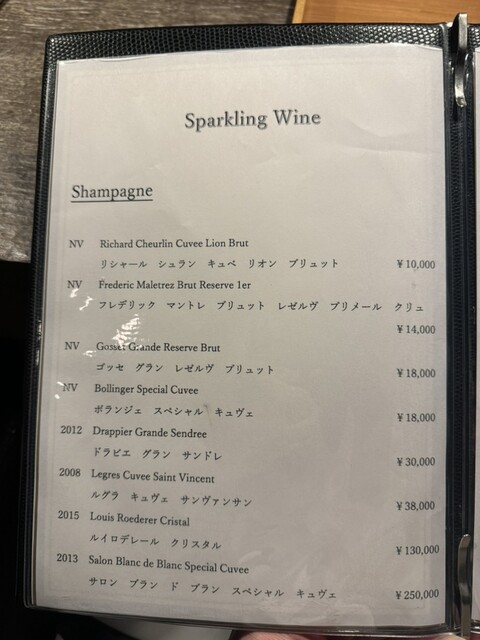 Sparkling Wine
Shampagne
NV Richard Cheurlin Cuvee Lion Brut
リシャール シュラン キュベ リオン ブリュット ￥10,000
NV Frederic Maletrez Brut Reserve 1er
フレデリック マントレ ブリュット レゼルヴ プリメール クリュ
￥14,000
NV Gosset Grande Reserve Brut
ゴッセ グラン レゼルヴ ブリュット ￥18,000
NV Bollinger Special Cuvee
ボランジェ スペシャル キュヴェ ￥18,000
2012 Drappier Grande Sendree
ドラピエ グラン サンドレ ￥30,000
2008 Legres Cuvee Saint Vincent
ルグラ キュヴェ サンヴァンサン ￥38,000
2015 Louis Roederer Cristal
ルイロデレール クリスタル ￥130,000
2013 Salon Blanc de Blanc Special Cuvee
サロン ブラン ド ブラン スペシャル キュヴェ ￥250,000